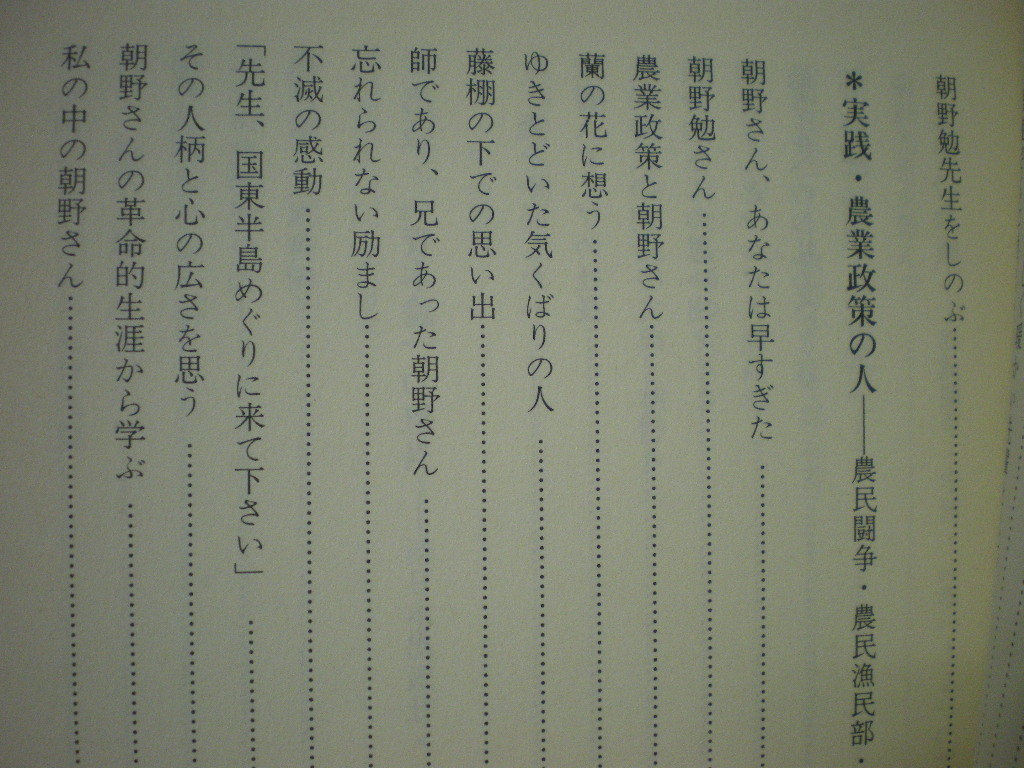 朝野勉先生をしのぶ
*実践・農業政策の人――農民闘争・農民漁民部・
朝野さん、あなたは早すぎた
朝野勉さん
農業政策と朝野さん
蘭の花に想う
ゆきとどいた気くばりの人
藤棚の下での思い出
師であり、兄であった朝野さん
忘れられない励まし
不滅の感動
「先生、国東半島めぐりに来て下さい」
その人柄と心の広さを思う
朝野さんの革命的生涯から学ぶ
私の中の朝野さん